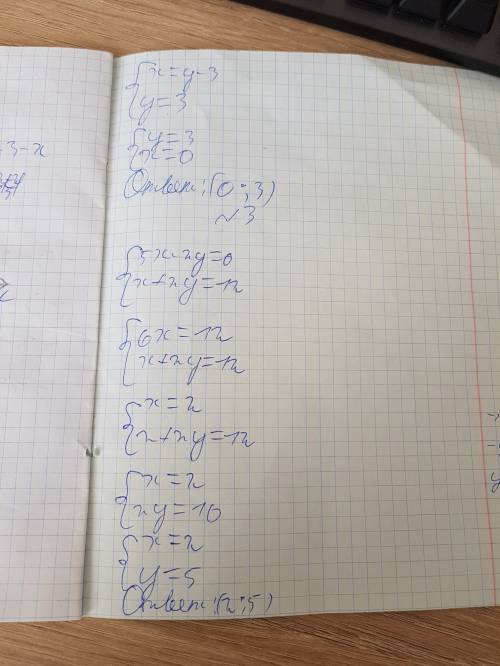 3-x
{x=y-3
{y=3
{y=3
{x=0
Ответ: (0;3)
~3
{5x-2y=0
{x+2y=12
{6x=12
{x+2y=12
{x=2
{2+2y=12
{x=2
{2y=10
{x=2
{y=5
Ответ: (2;5)